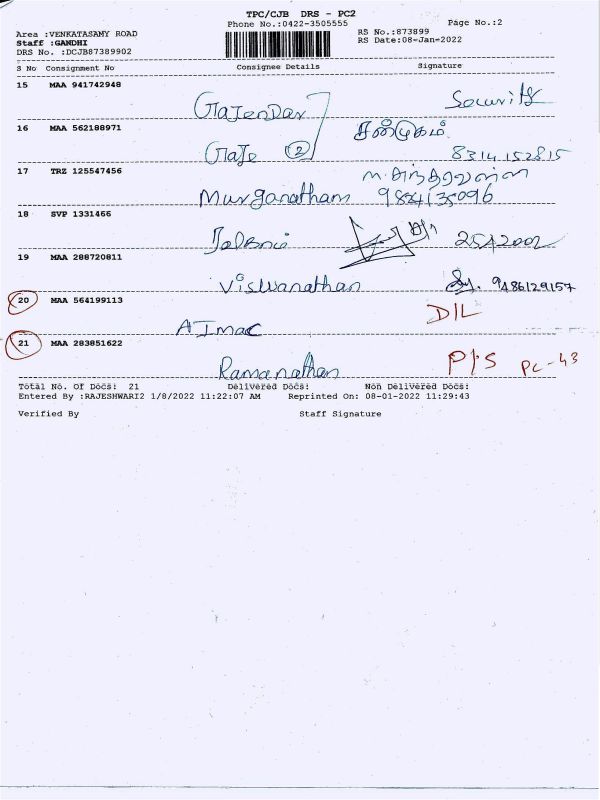 TPC/CJB DRS - PC2
Phone No.:0422-3505555
Page No.:2
Area :VENKATASAMY ROAD
RS No.:873899
Staff :GANDHI
RS Date:08-Jan-2022
DRS No. :DCJB87389902
S No Consignment No Consignee Details Signature
15 MAA 941742948
GaJenDar Security
16 MAA 562188971
சண்முகம்
GaJe 2 8314152815
17 TRZ 125547456
Murganatham
18 SVP 1331466
19 MAA 288720811
Viswanathan 9486129157
20 MAA 564199113
D/L
AImac
21 MAA 283851622
Ramanathan P/S PC-43
Total No. Of Docs: 21 Delivered Docs: Non Delivered Docs:
Entered By :RAJESHWARI2 1/8/2022 11:22:07 AM Reprinted On: 08-01-2022 11:29:43
Verified By Staff Signature